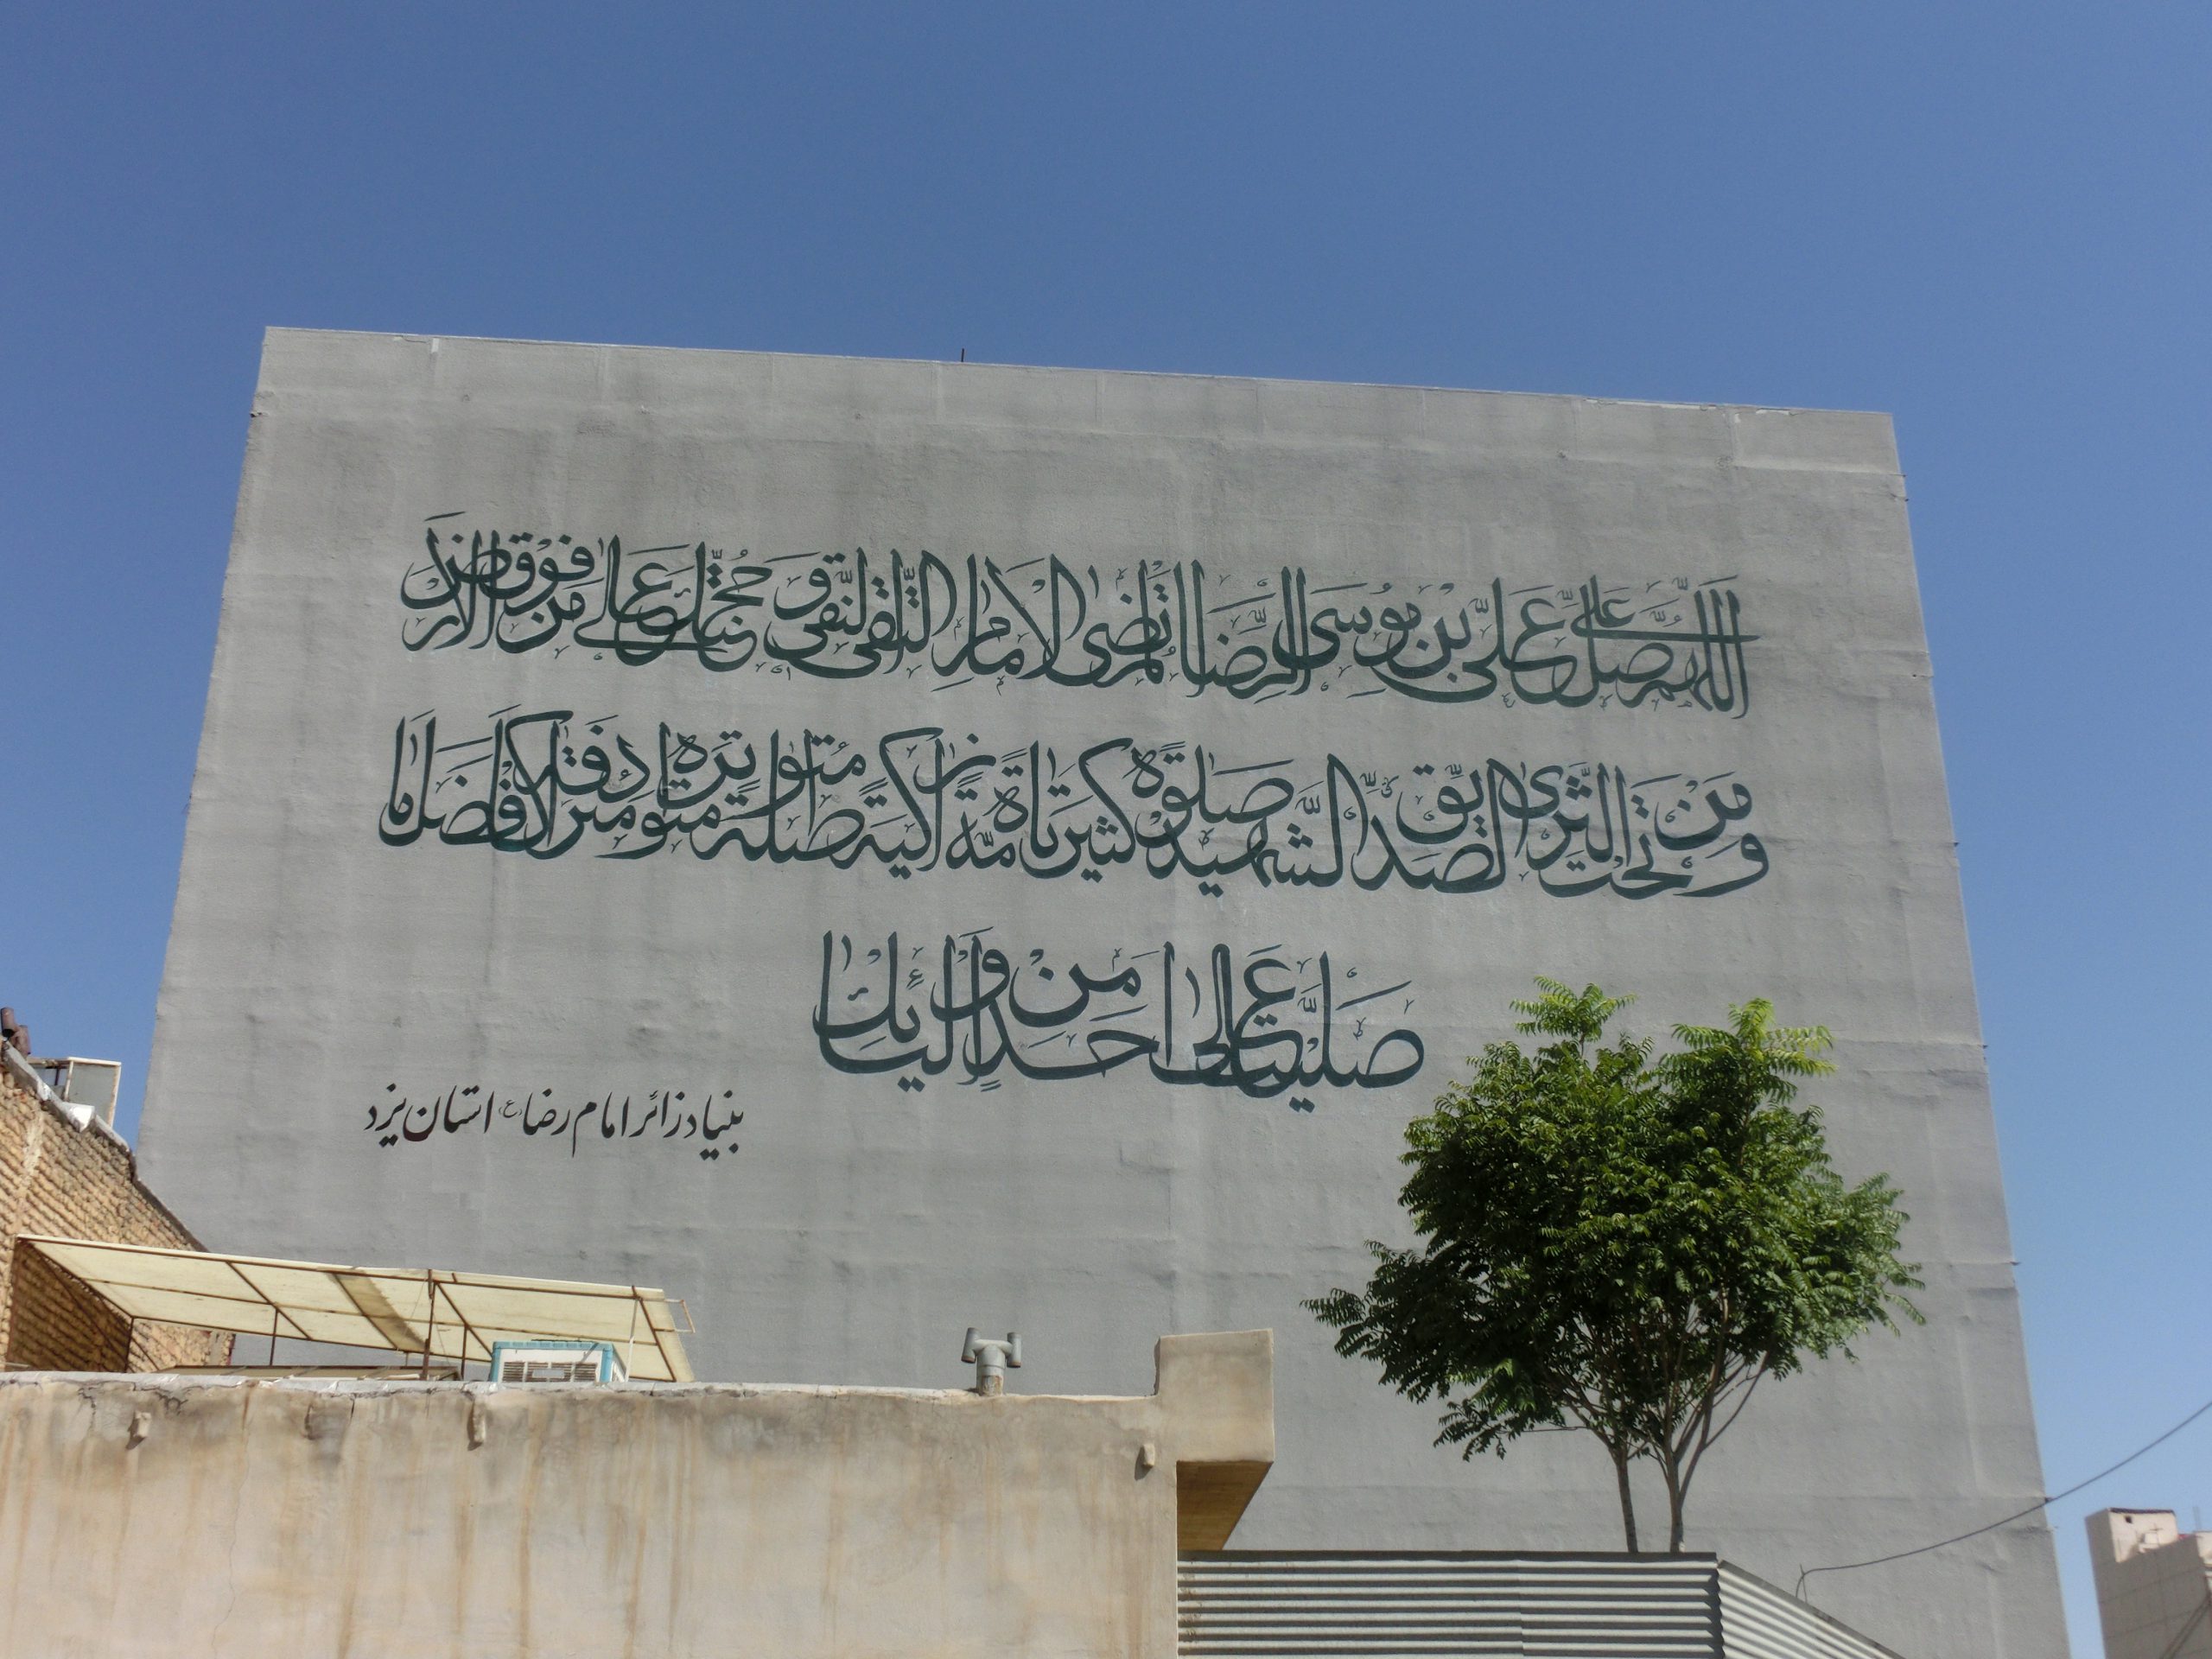 اللّٰهُمَّ صَلِّ عَلیٰ عَلِیِّ بْنِ مُوسَی الرِّضَا الْمُرْتَضَی الْاِمٰامِ التَّقِیِّ النَّقِیِّ وَ حُجَّتِکَ عَلیٰ مَنْ فَوْقَ الْاَرْضِ
وَ مَنْ تَحْتَ الثَّریٰ الصِّدّیقِ الشَّهیدِ صَلٰوةً کَثیرَةً تٰامَّةً زٰاکِیَةً مُتَوٰاصِلَةً مُتَوٰاتِرَةً مُتَرٰادِفَةً کَاَفْضَلِ مٰا
صَلَّیْتَ عَلیٰ اَحَدٍ مِنْ اَوْلِیٰائِکَ
بنیاد زائر امام رضا (ع) استان یزد